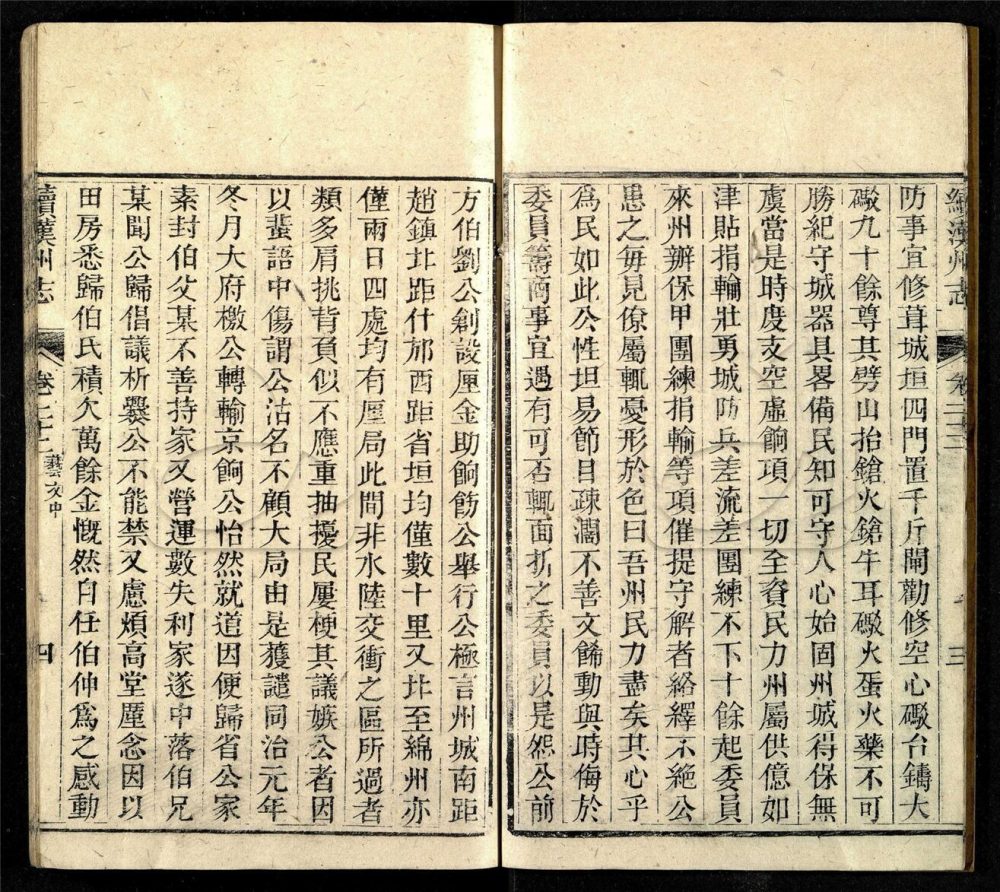 續漢州志 卷二十三 三
防事宜修葺城垣四門置千斤閘勸修空心礮台鑄大
礮九十餘尊其劈山抬鎗火鎗牛耳礮火蛋火藥不可
勝紀守城器具畧備民知可守人心始固州城得保無
虞當是時度支空虛餉項一切全資民力州屬供億如
津貼捐輸壯勇城防兵差流差團練不下十餘起委員
來州辦保甲團練捐輸等項催提守解者絡繹不絕公
患之每見僚屬輒憂形於色曰吾州民力盡矣其心乎
為民如此公性坦易節目疎濶不善文餙動與時侮於
委員籌商事宜遇有可否輒面折之委員以是怨公前
方伯劉公創設厘金助餉飭公舉行公極言州城南距
趙鎮北距什邡西距省垣均僅數十里又北至綿州亦
僅兩日四處均有厘局此間非水陸交衝之區所過者
類多肩挑背負似不應重抽擾民屢梗其議嫉公者因
以蜚語中傷謂公沽名不顧大局由是獲譴同治元年
冬月大府檄公轉輸京餉公怡然就道因便歸省公家
素封伯父某不善持家又營運數失利家遂中落伯兄
某聞公歸倡議析爨公不能禁又慮煩高堂廑念因以
田房悉歸伯氏積欠萬餘金慨然自任伯仲為之感動
續漢州志 卷二十二 藝文中 四